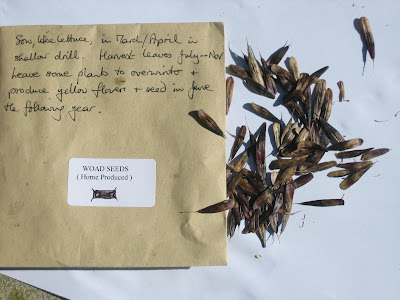 Sow, like lettuce, in March/April in
shallow drill. Harvest leaves July → Nov
Leave some plants to overwinter +
produce yellow flowers + seed in June
the following year.
WOAD SEEDS
( Home Produced )